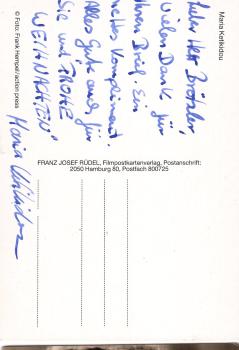 Maria Ketikidou
Lieber Herr Brötzler,
Vielen Dank für
Ihren Brief. Ein
nettes Kompliment.
Alles Gute auch für
Sie und FROHE
WEIHNACHTEN
Maria Ketikidou
© Foto: Frank Hempel/action press
FRANZ JOSEF RÜDEL, Filmpostkartenverlag, Postanschrift:
2050 Hamburg 80, Postfach 800725